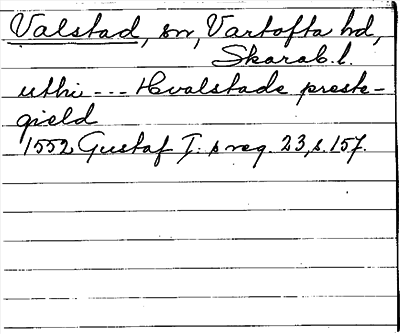 Valstad, sn, Vartofta hd,
Skarab. l.
uthi --- Hvalstade preste-
gield
1552 Gustaf I:s reg. 23, s. 157.